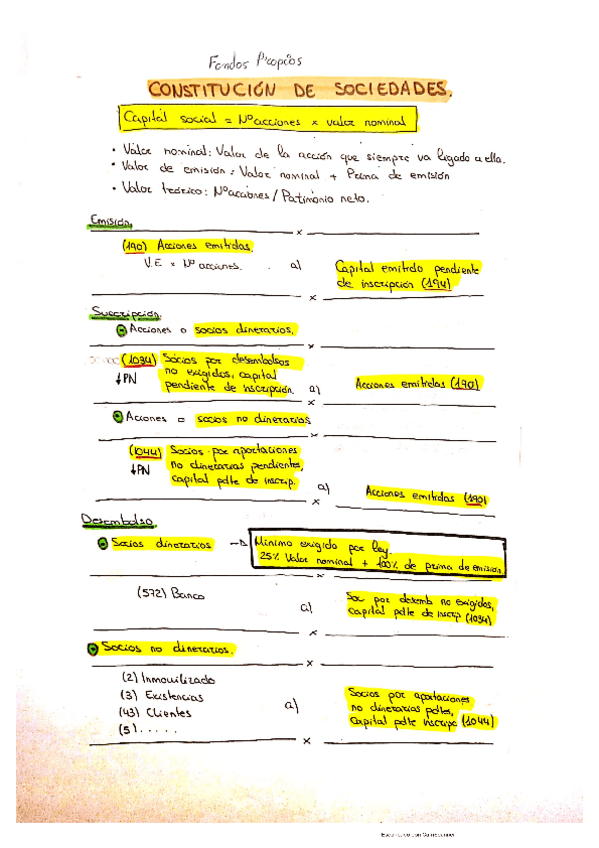 Fondos Propios
CONSTITUCIÓN DE SOCIEDADES.
Capital social = Nº acciones x valor nominal
· Valor nominal: Valor de la acción que siempre va ligado a ella.
· Valor de emisión: Valor nominal + Prima de emisión
· Valor teórico: Nº acciones / Patimonio neto.
Emisión.
x
(190) Acciones emitidas.
V.E x Nº acciones. a)
Capital emitido pendiente
de inscripción (194)
x
Suscripción.
Acciones o socios dinerarios.
x
(1034) Socios por desembolsos
no exigidos, capital
pendiente de inscripción. a)
↓PN
Acciones emitidas (190)
x
Acciones o socios no dinerarios
x
(1044) Socios por aportaciones
no dinerarias pendientes,
capital pdte de inscrip. a)
↓PN
Acciones emitidas (190)
x
Desembolso.
Socios dinerarios → Mínimo exigido por ley.
25% Valor nominal + 100% de prima de emisión.
x
(572) Banco a)
Soc por desemb no exigidos,
capital pdte de inscrip (1034)
x
Socios no dinerarios.
x
(2) Inmovilizado
(3) Existencias
(43) Clientes a)
(5) . . . . .
Socios por aportaciones
no dinerarias pdtes,
Capital pdte inscripc (1044)
x
Escaneado con CamScanner